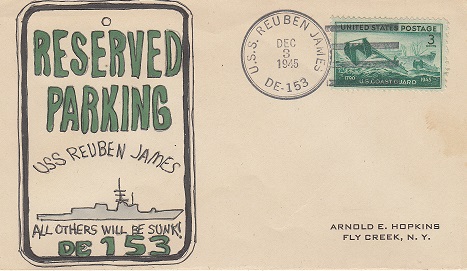 RESERVED
PARKING
USS REUBEN JAMES
ALL OTHERS WILL BE SUNK!
DE 153
U.S.S. REUBEN JAMES
DEC
3
1945
DE-153
UNITED STATES POSTAGE
3
1790 1945
U.S. COAST GUARD
ARNOLD E. HOPKINS
FLY CREEK, N. Y.